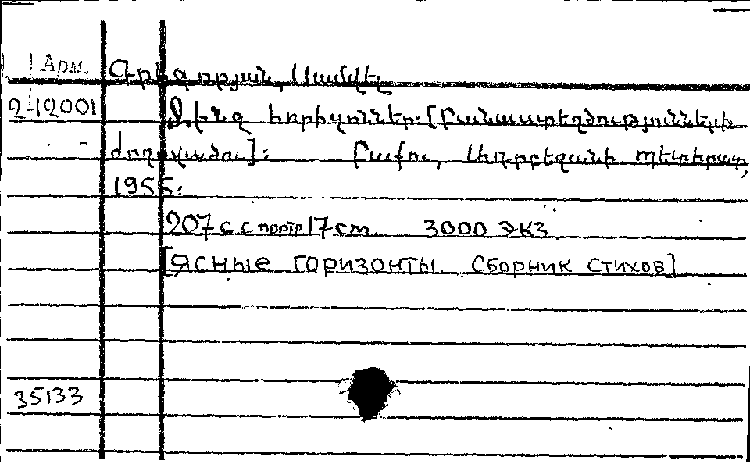 Арм. Գրիգորյան, Սամվել
2-12001 Ջինջ հորիզոններ: [Բանաստեղծությունների
ժողովածու]: Բաքու, Ադրբեջանի պետհրատ,
1955:
207 с. с портр 17 cm. 3000 экз
[Ясные горизонты. Сборник стихов]
35133